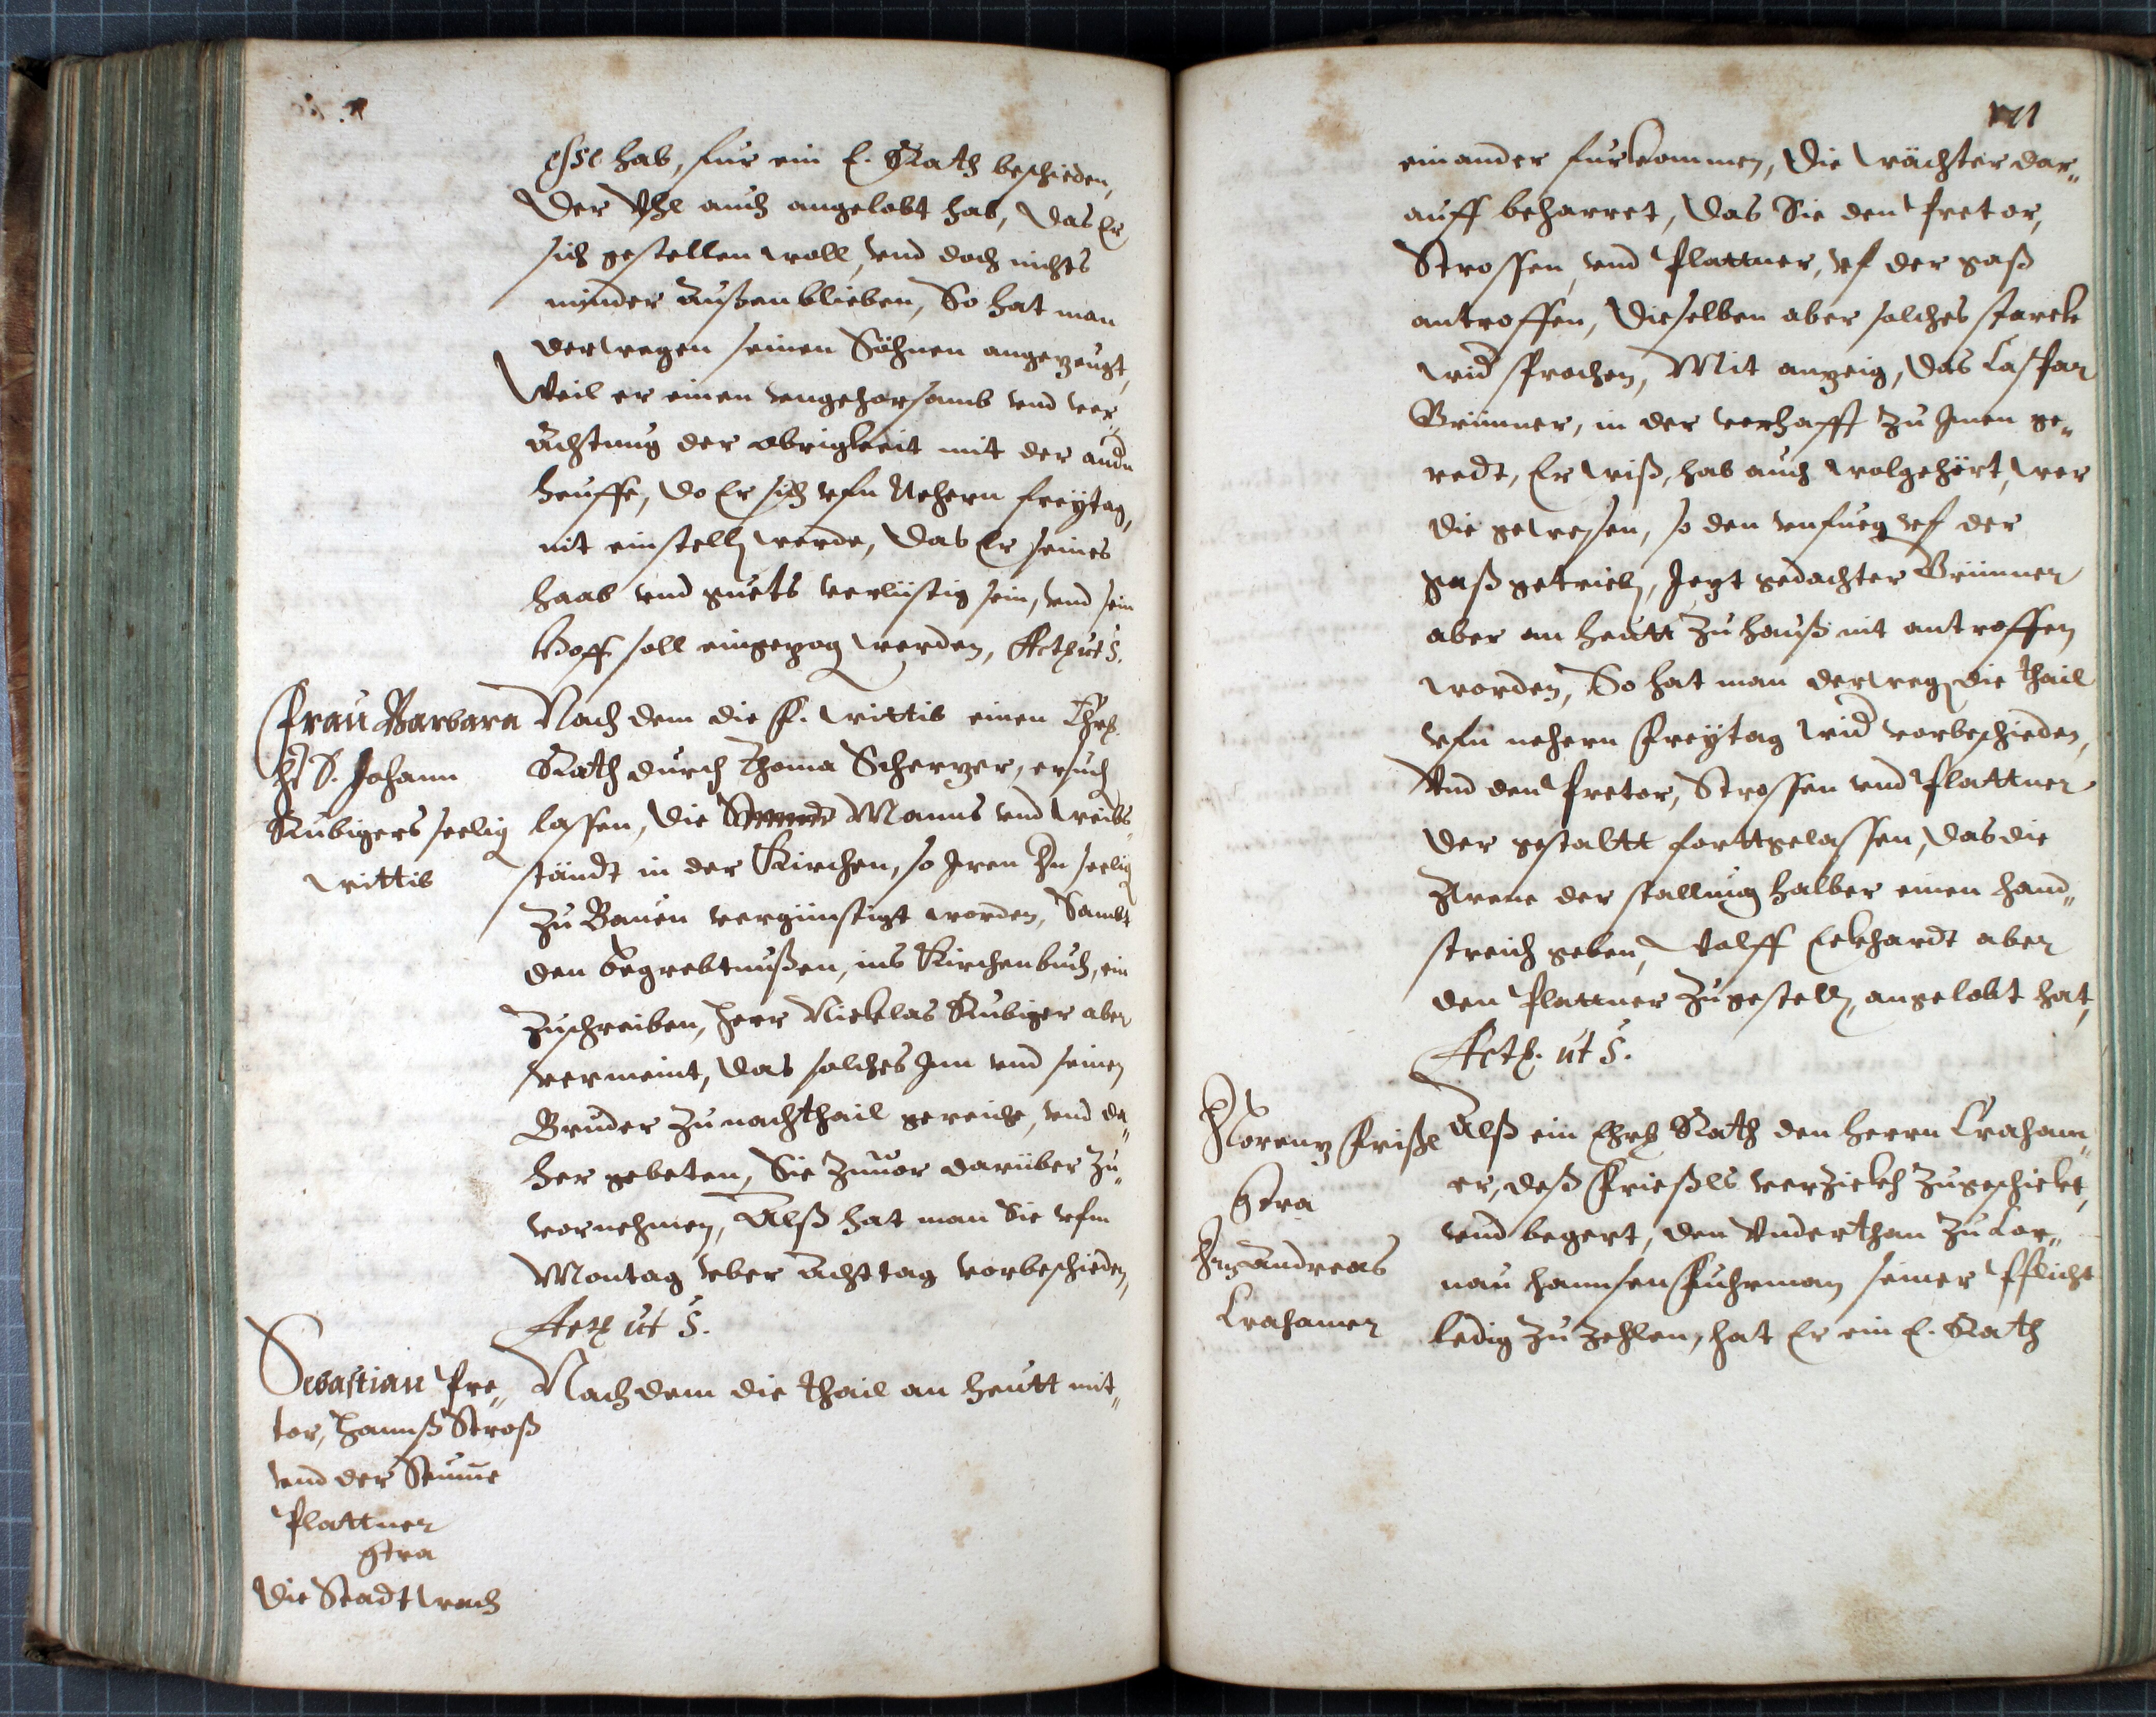 hab, fur ein E. Rath beschieden,
Der auch angelobt hab, das Er
sich gestellen woll, vnd doch nichts
minder außenblieben, So hat man
derwegen seinen Söhnen angezeugt,
Weil er einen vngehorsamb vnd ver„
achtung der obrigkeit mit der andn
heuffe, do Er sich vfn Nehern freÿtag,
nit einstelln werde, das Er seines
haab vnd guets verlüstig sein, vnd sein
Hoff soll eingezog werden, Act. ut S.
Frau Barbara
H. D. Johann
Rubigers seelig
wittib
Nach dem die F. wittib einen Ehrs.
Rath durch Thoma Scherzer, ersuch
lassen, die Manns vnd weibs„
ständt in der Kirchen, so Jren Hn seelig
zu Bauen vergünstigt worden, Sambt
den begrebtnußen, ins Kirchenbuch, ein
zuschreiben, Herr Nicklas Rubiger aber
vermeint, das solches Jm vnd seinen
Bruder zu nachthail gereiche, vnd da„
her gebeten, Sie zuuor darüber zu„
vornehmen, Alß hat man Sie vfm
Montag vber acht tag vorbeschieden,
Act ut S.
Sebastian Pre„
tor, Hannß Stroß
vnd der Stume
Plattner
9tra
die Stadtwach
Nach dem die thail an heutt mit„
einander furkommen, Die wächter dar„
auff beharret, das Sie den Pretor,
Strossen, vnd Plattner, vf der gaß
antroffen, Dieselben aber solches starck
wid sprochen, Mit anzeig, das Caspar
Brünner, in der verhafft zu Jnen ge„
redt, Er wiß, hab auch wolgehört, wer
die gewesen, so den vnfueg vf der
gaß getrieb, Jezt gedachter Brünner
aber an heutt zu hauß nit antroffen
worden, So hat man derweg die thail
vfn nehern Freÿtag wid vorbeschieden,
Vnd den Pretor, Strossen vnd Plattner
der gestaltt fortgelassen, das die
Zwene der stallung halber einen hand„
streich geben, Wolff Eckhardt aber
den Plattner zugestelln, angelobt hat,
Act. ut S.
Lorenz Frißl
9tra
Hn Andreas
Crahamer
Alß ein Ehrs Rath den Herrn Craham„
er, deß Frießls verzickh zugeschickt,
vnd begert, den Vnderthan zu Lor„
nau Hannsen Fuhrman seiner Pflicht
ledig zu zehlen, hat Er ein E. Rath